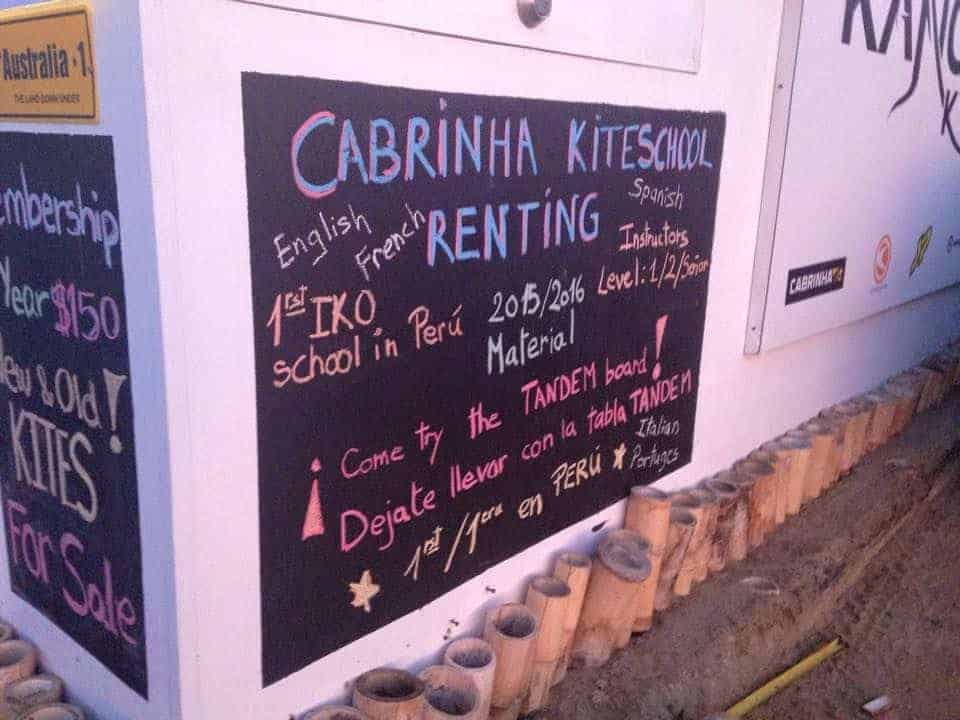 Australia · 1
THE LAND DOWN UNDER
embership
Year $150
New & Old
KITES !
For Sale
CABRINHA KITESCHOOL
RENTING
English
French
Spanish
1rst IKO
school in Perú
2015/2016
Material
Instructors
Level: 1/2/Señor
¡ Come try the TANDEM board !
Dejate llevar con la tabla TANDEM
1rst/1era en PERÚ
Italian
Portuges
CABRINHA